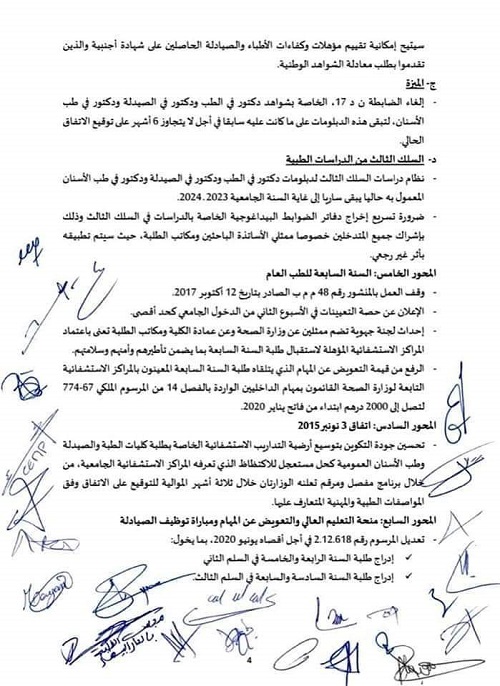 سيتيح إمكانية تقييم مؤهلات وكفاءات الأطباء والصيادلة الحاصلين على شهادة أجنبية والذين
تقدموا بطلب معادلة الشواهد الوطنية.
ج- الميزة
- إلغاء الضابطة ن د 17، الخاصة بشواهد دكتور في الطب ودكتور في الصيدلة ودكتور في طب
الأسنان، لتبقى هذه الدبلومات على ما كانت عليه سابقا في أجل لا يتجاوز 6 أشهر على توقيع الاتفاق
الحالي.
د- السلك الثالث من الدراسات الطبية
- نظام دراسات السلك الثالث لدبلومات دكتور في الطب ودكتور في الصيدلة ودكتور في طب الأسنان
المعمول به حاليا يبقى ساريا إلى غاية السنة الجامعية 2023ـ2024.
- ضرورة تسريع إخراج دفاتر الضوابط البيداغوجية الخاصة بالدراسات في السلك الثالث وذلك
بإشراك جميع المتدخلين خصوصا ممثلي الأساتذة الباحثين ومكاتب الطلبة، حيث سيتم تطبيقه
بأثر غير رجعي.
المحور الخامس: السنة السابعة للطب العام
- وقف العمل بالمنشور رقم 48 م م ب الصادر بتاريخ 12 أكتوبر 2017.
- الإعلان عن حصة التعيينات في الأسبوع الثاني من الدخول الجامعي كحد أقصى.
- إحداث لجنة جهوية تضم ممثلين عن وزارة الصحة وعن عمادة الكلية ومكاتب الطلبة تعنى باعتماد
المراكز الاستشفائية المؤهلة لاستقبال طلبة السنة السابعة بما يضمن تأطيرهم وأمنهم وسلامتهم.
- الرفع من قيمة التعويض عن المهام الذي يتلقاه طلبة السنة السابعة المعينون بالمراكز الاستشفائية
التابعة لوزارة الصحة القائمون بمهام الداخليين الواردة بالفصل 14 من المرسوم الملكي 67-774
لتصل إلى 2000 درهم ابتداء من فاتح يناير 2020.
المحور السادس: اتفاق 3 نونبر 2015
- تحسين جودة التكوين بتوسيع أرضية التداريب الاستشفائية الخاصة بطلبة كليات الطب والصيدلة
وطب الأسنان العمومية كحل مستعجل للاكتظاظ الذي تعرفه المراكز الاستشفائية الجامعية، من
خلال برنامج مفصل ومرقم تعلنه الوزارتان خلال ثلاثة أشهر الموالية للتوقيع على الاتفاق وفق
المواصفات الطبية والمهنية المتعارف عليها.
المحور السابع: منحة التعليم العالي والتعويض عن المهام ومباراة توظيف الصيادلة
- تعديل المرسوم رقم 2.12.618 في أجل أقصاه يونيو 2020، بما يخول:
✓ إدراج طلبة السنة الرابعة والخامسة في السلم الثاني
✓ إدراج طلبة السنة السادسة والسابعة في السلم الثالث.
4